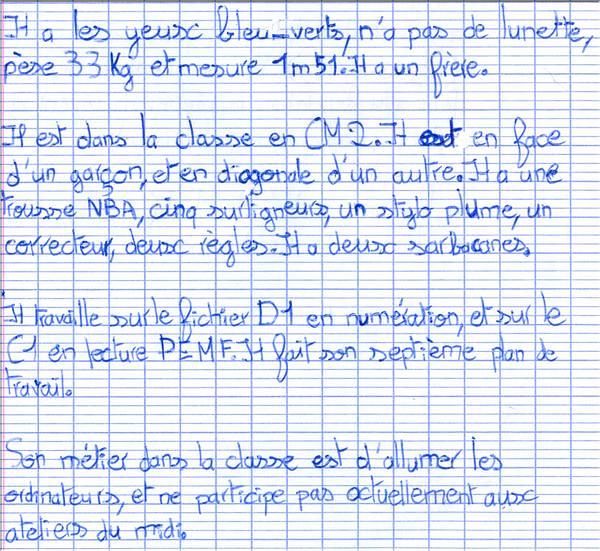 Il a les yeux bleu-verts, n'a pas de lunette,
pèse 33 Kg et mesure 1m51. Il a un frère.
Il est dans la classe en CM2. Il est en face
d'un garçon, et en diagonale d'un autre. Il a une
trousse NBA, cinq surligneurs, un stylo plume, un
correcteur, deux règles. Il a deux sarbacanes.
Il travaille sur le fichier D1 en numération, et sur le
C1 en lecture PEMF. Il fait son septième plan de
travail.
Son métier dans la classe est d'allumer les
ordinateurs, et ne participe pas actuellement aux
ateliers du midi.